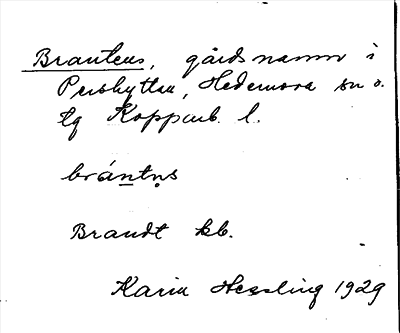 Brantens, gårdsnamn i
Pershyttan, Hedemora sn o.
tg Kopparb. l.
brántn̥s
Brandt kb.
Karin Hessling 1929